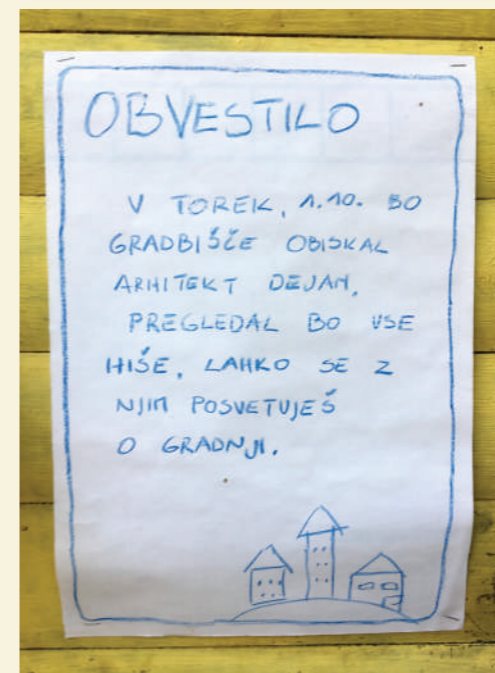 OBVESTILO
V TOREK, 1.10. BO
GRADBIŠČE OBISKAL
ARHITEKT DEJAN.
PREGLEDAL BO VSE
HIŠE. LAHKO SE Z
NJIM POSVETUJEŠ
O GRADNJI.